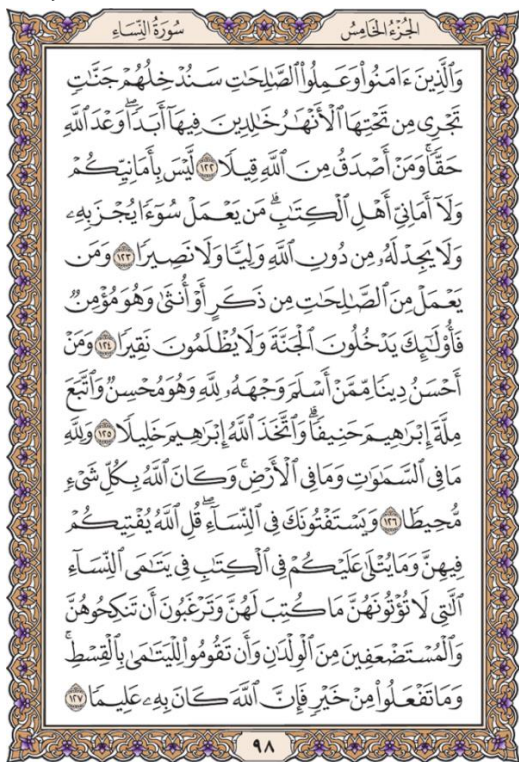 الجُزْءُ الخَامِسُ
سُورَةُ النِّسَاءِ
وَالَّذِينَ ءَامَنُوا۟ وَعَمِلُوا۟ الصَّٰلِحَٰتِ سَنُدْخِلُهُمْ جَنَّٰتٍ
تَجْرِى مِن تَحْتِهَا الْأَنْهَٰرُ خَٰلِدِينَ فِيهَآ أَبَدًا ۖ وَعْدَ اللَّهِ
حَقًّا ۚ وَمَنْ أَصْدَقُ مِنَ اللَّهِ قِيلًا ١٢٢ لَّيْسَ بِأَمَانِيِّكُمْ
وَلَآ أَمَانِىِّ أَهْلِ الْكِتَٰبِ ۗ مَن يَعْمَلْ سُوٓءًا يُجْزَ بِهِۦ
وَلَا يَجِدْ لَهُۥ مِن دُونِ اللَّهِ وَلِيًّا وَلَا نَصِيرًا ١٢٣ وَمَن
يَعْمَلْ مِنَ الصَّٰلِحَٰتِ مِن ذَكَرٍ أَوْ أُنثَىٰ وَهُوَ مُؤْمِنٌ
فَأُو۟لَٰٓئِكَ يَدْخُلُونَ الْجَنَّةَ وَلَا يُظْلَمُونَ نَقِيرًا ١٢٤ وَمَنْ
أَحْسَنُ دِينًا مِّمَّنْ أَسْلَمَ وَجْهَهُۥ لِلَّهِ وَهُوَ مُحْسِنٌ وَاتَّبَعَ
مِلَّةَ إِبْرَٰهِيمَ حَنِيفًا ۗ وَاتَّخَذَ اللَّهُ إِبْرَٰهِيمَ خَلِيلًا ١٢٥ وَلِلَّهِ
مَا فِى السَّمَٰوَٰتِ وَمَا فِى الْأَرْضِ ۚ وَكَانَ اللَّهُ بِكُلِّ شَىْءٍ
مُّحِيطًا ١٢٦ وَيَسْتَفْتُونَكَ فِى النِّسَآءِ ۖ قُلِ اللَّهُ يُفْتِيكُمْ
فِيهِنَّ وَمَا يُتْلَىٰ عَلَيْكُمْ فِى الْكِتَٰبِ فِى يَتَٰمَى النِّسَآءِ
الَّٰتِى لَا تُؤْتُونَهُنَّ مَا كُتِبَ لَهُنَّ وَتَرْغَبُونَ أَن تَنكِحُوهُنَّ
وَالْمُسْتَضْعَفِينَ مِنَ الْوِلْدَٰنِ وَأَن تَقُومُوا۟ لِلْيَتَٰمَىٰ بِالْقِسْطِ ۚ
وَمَا تَفْعَلُوا۟ مِنْ خَيْرٍ فَإِنَّ اللَّهَ كَانَ بِهِۦ عَلِيمًا ١٢٧
٩٨